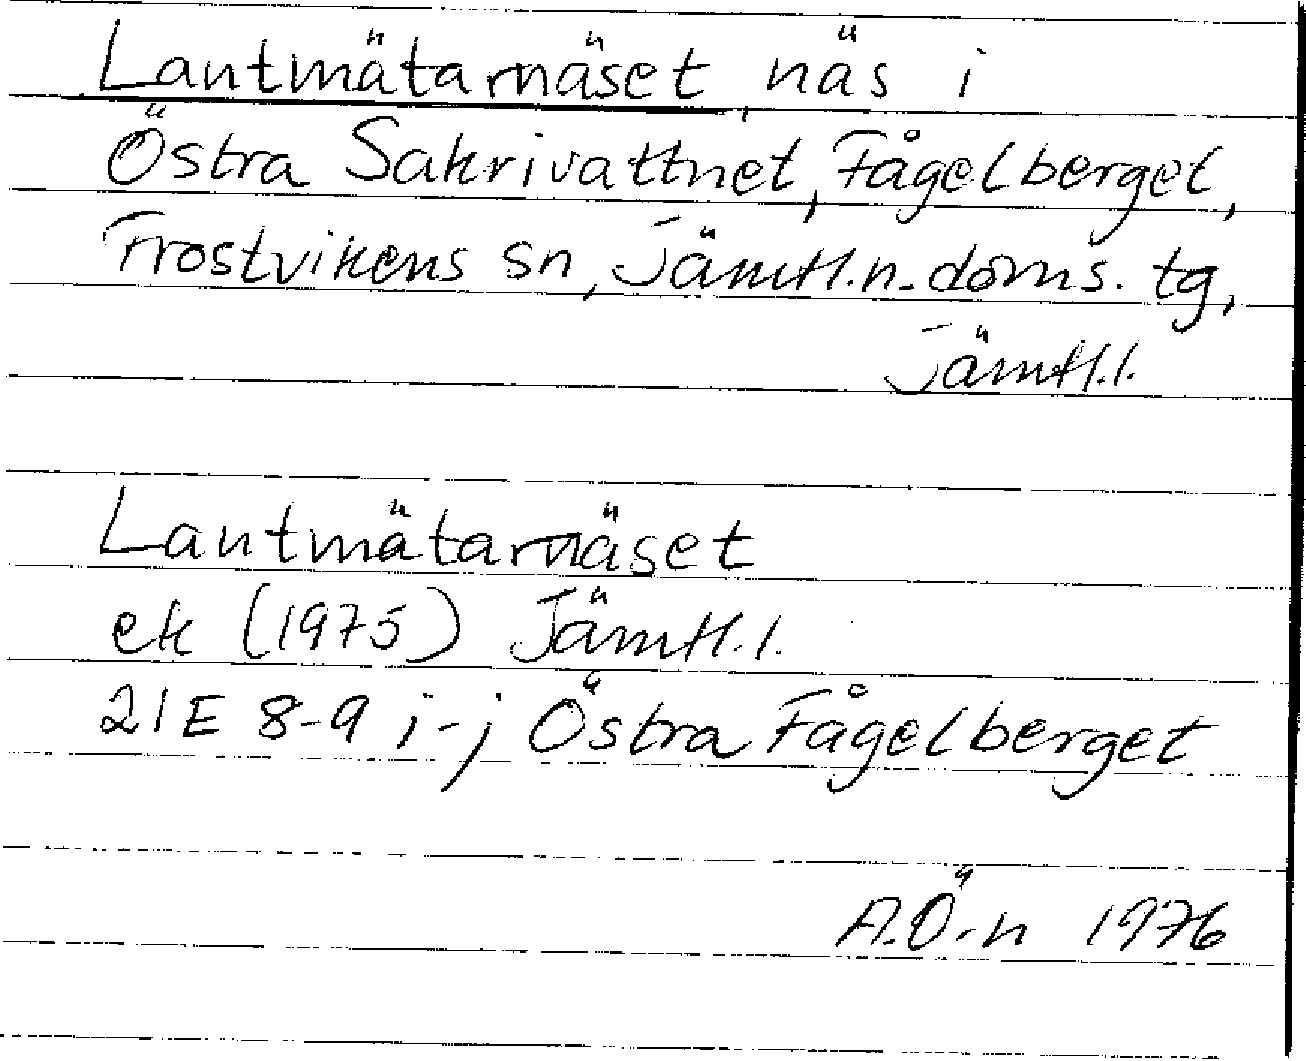 Lantmätarnäset, näs i
Östra Sakrivattnet, Fågelberget,
Frostvikens sn, Jämtl.n. doms. tg,
Jämtl.l.
Lantmätarnäset
ek (1975) Jämtl.l.
21E 8-9 i-j Östra Fågelberget
A.Ö-n 1976